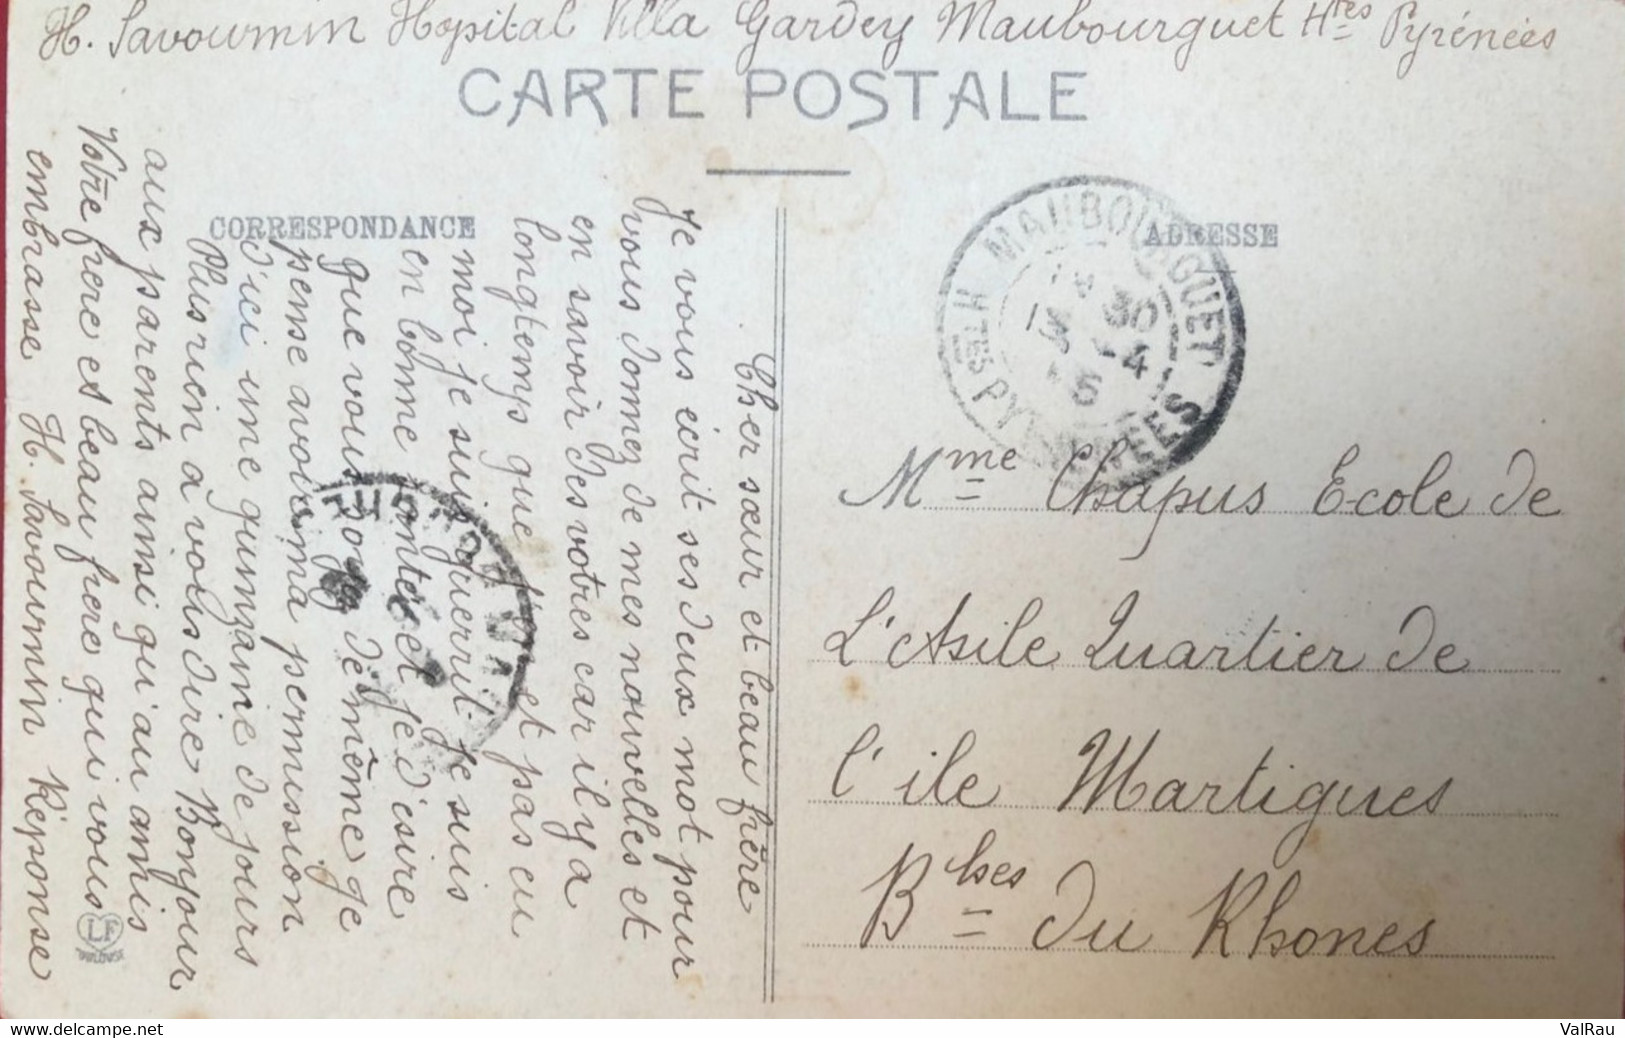 H. Savournin Hopital Villa Gardey Maubourguet Htes Pyrénées
CARTE POSTALE
CORRESPONDANCE
ADRESSE
Cher sœur et beau frère
Je vous ecrit ses deux mot pour
vous donnez de mes nouvelles et
en savoir des votres car il y a
longtemps que j'en et pas eu
moi je suis guerrit. je suis
en bonne santée et je d'esire
que vous soyez de même je
pense avoir ma permission
d'ici une quinzaine de jours
Plus rien à vous dire Bonjour
aux parents ainsi qu'au amis
Votre frere et beau frere qui vous
embrasse H. Savournin Réponse
MAUBOURGUET
HTES PYRENEES
30
-4
Mme Chapus Ecole de
L'Asile Quartier de
l'ile Martigues
Bches du Rhones
LF
TOULOUSE
ValRau